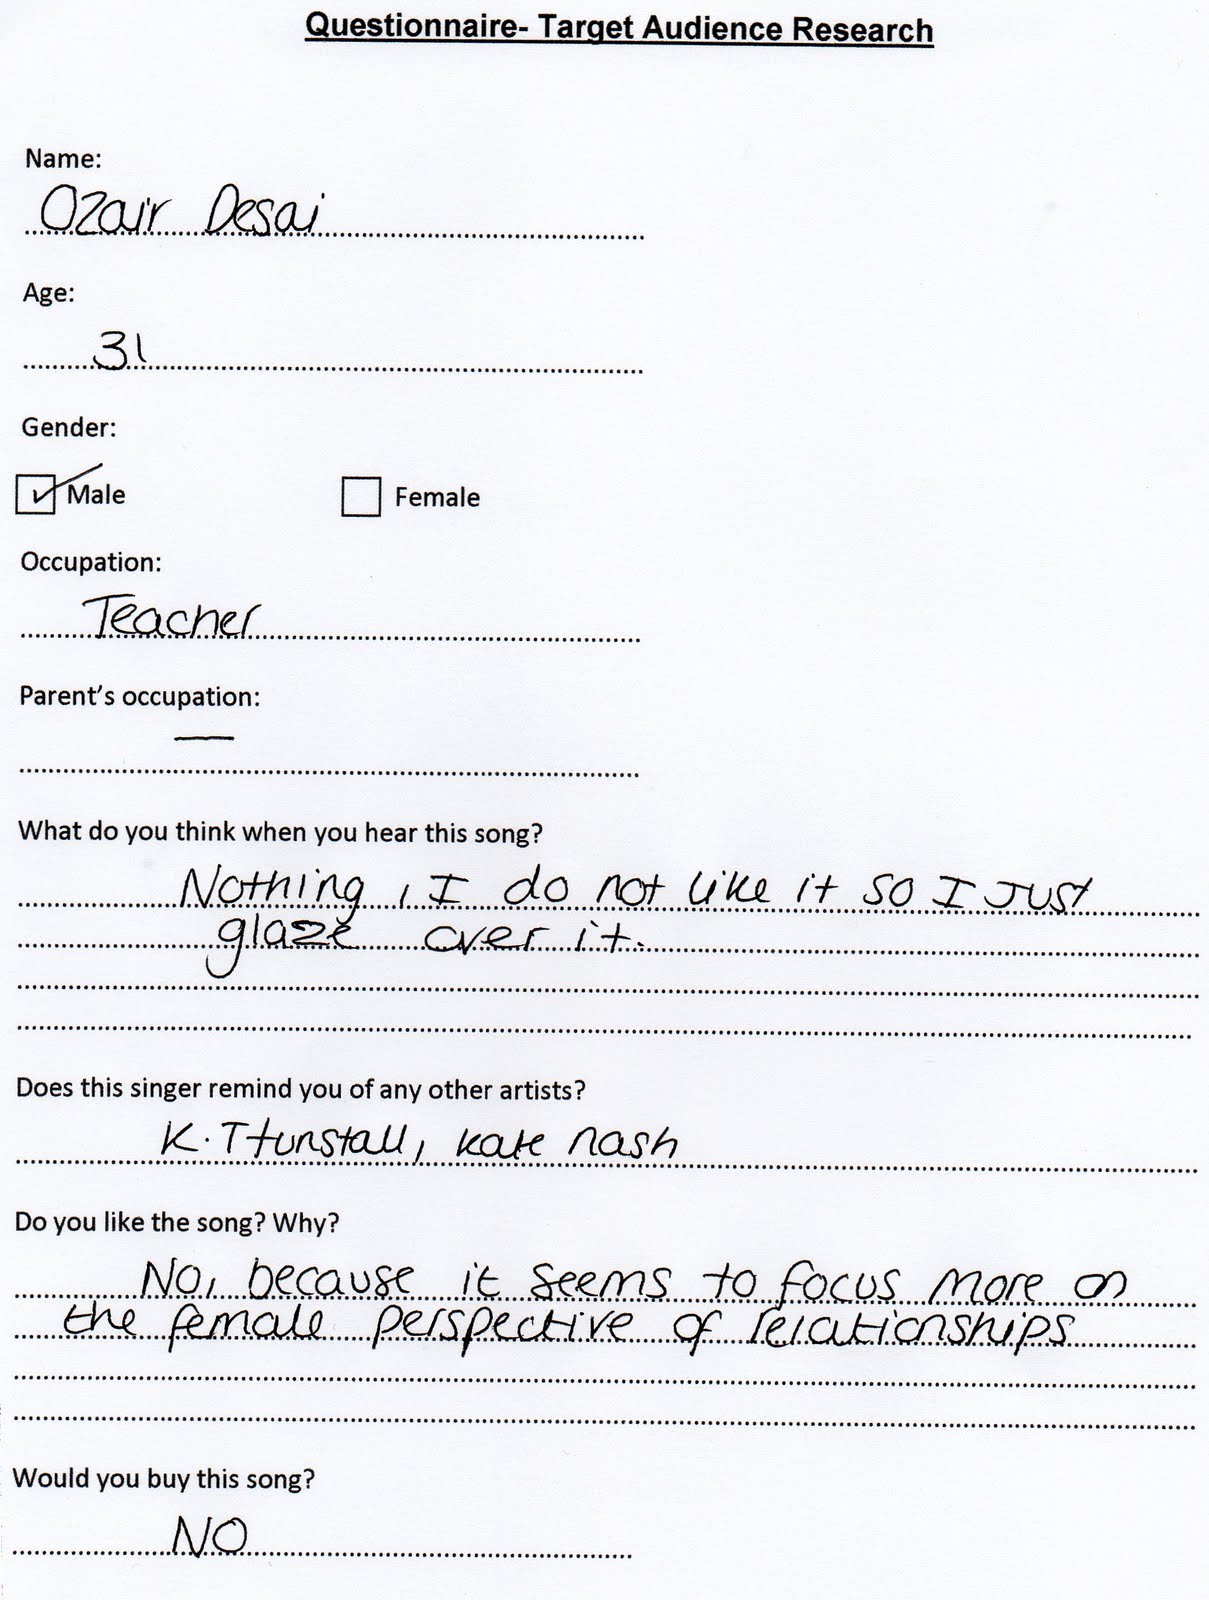 Questionnaire- Target Audience Research
Name:
Ozair Desai
Age:
31
Gender:
Male Female
Occupation:
Teacher
Parent's occupation:
—
What do you think when you hear this song?
Nothing, I do not like it so I Just
glaze over it.
Does this singer remind you of any other artists?
K.T tunstall, kate nash
Do you like the song? Why?
No, because it seems to focus more on
the female perspective of relationships
Would you buy this song?
NO